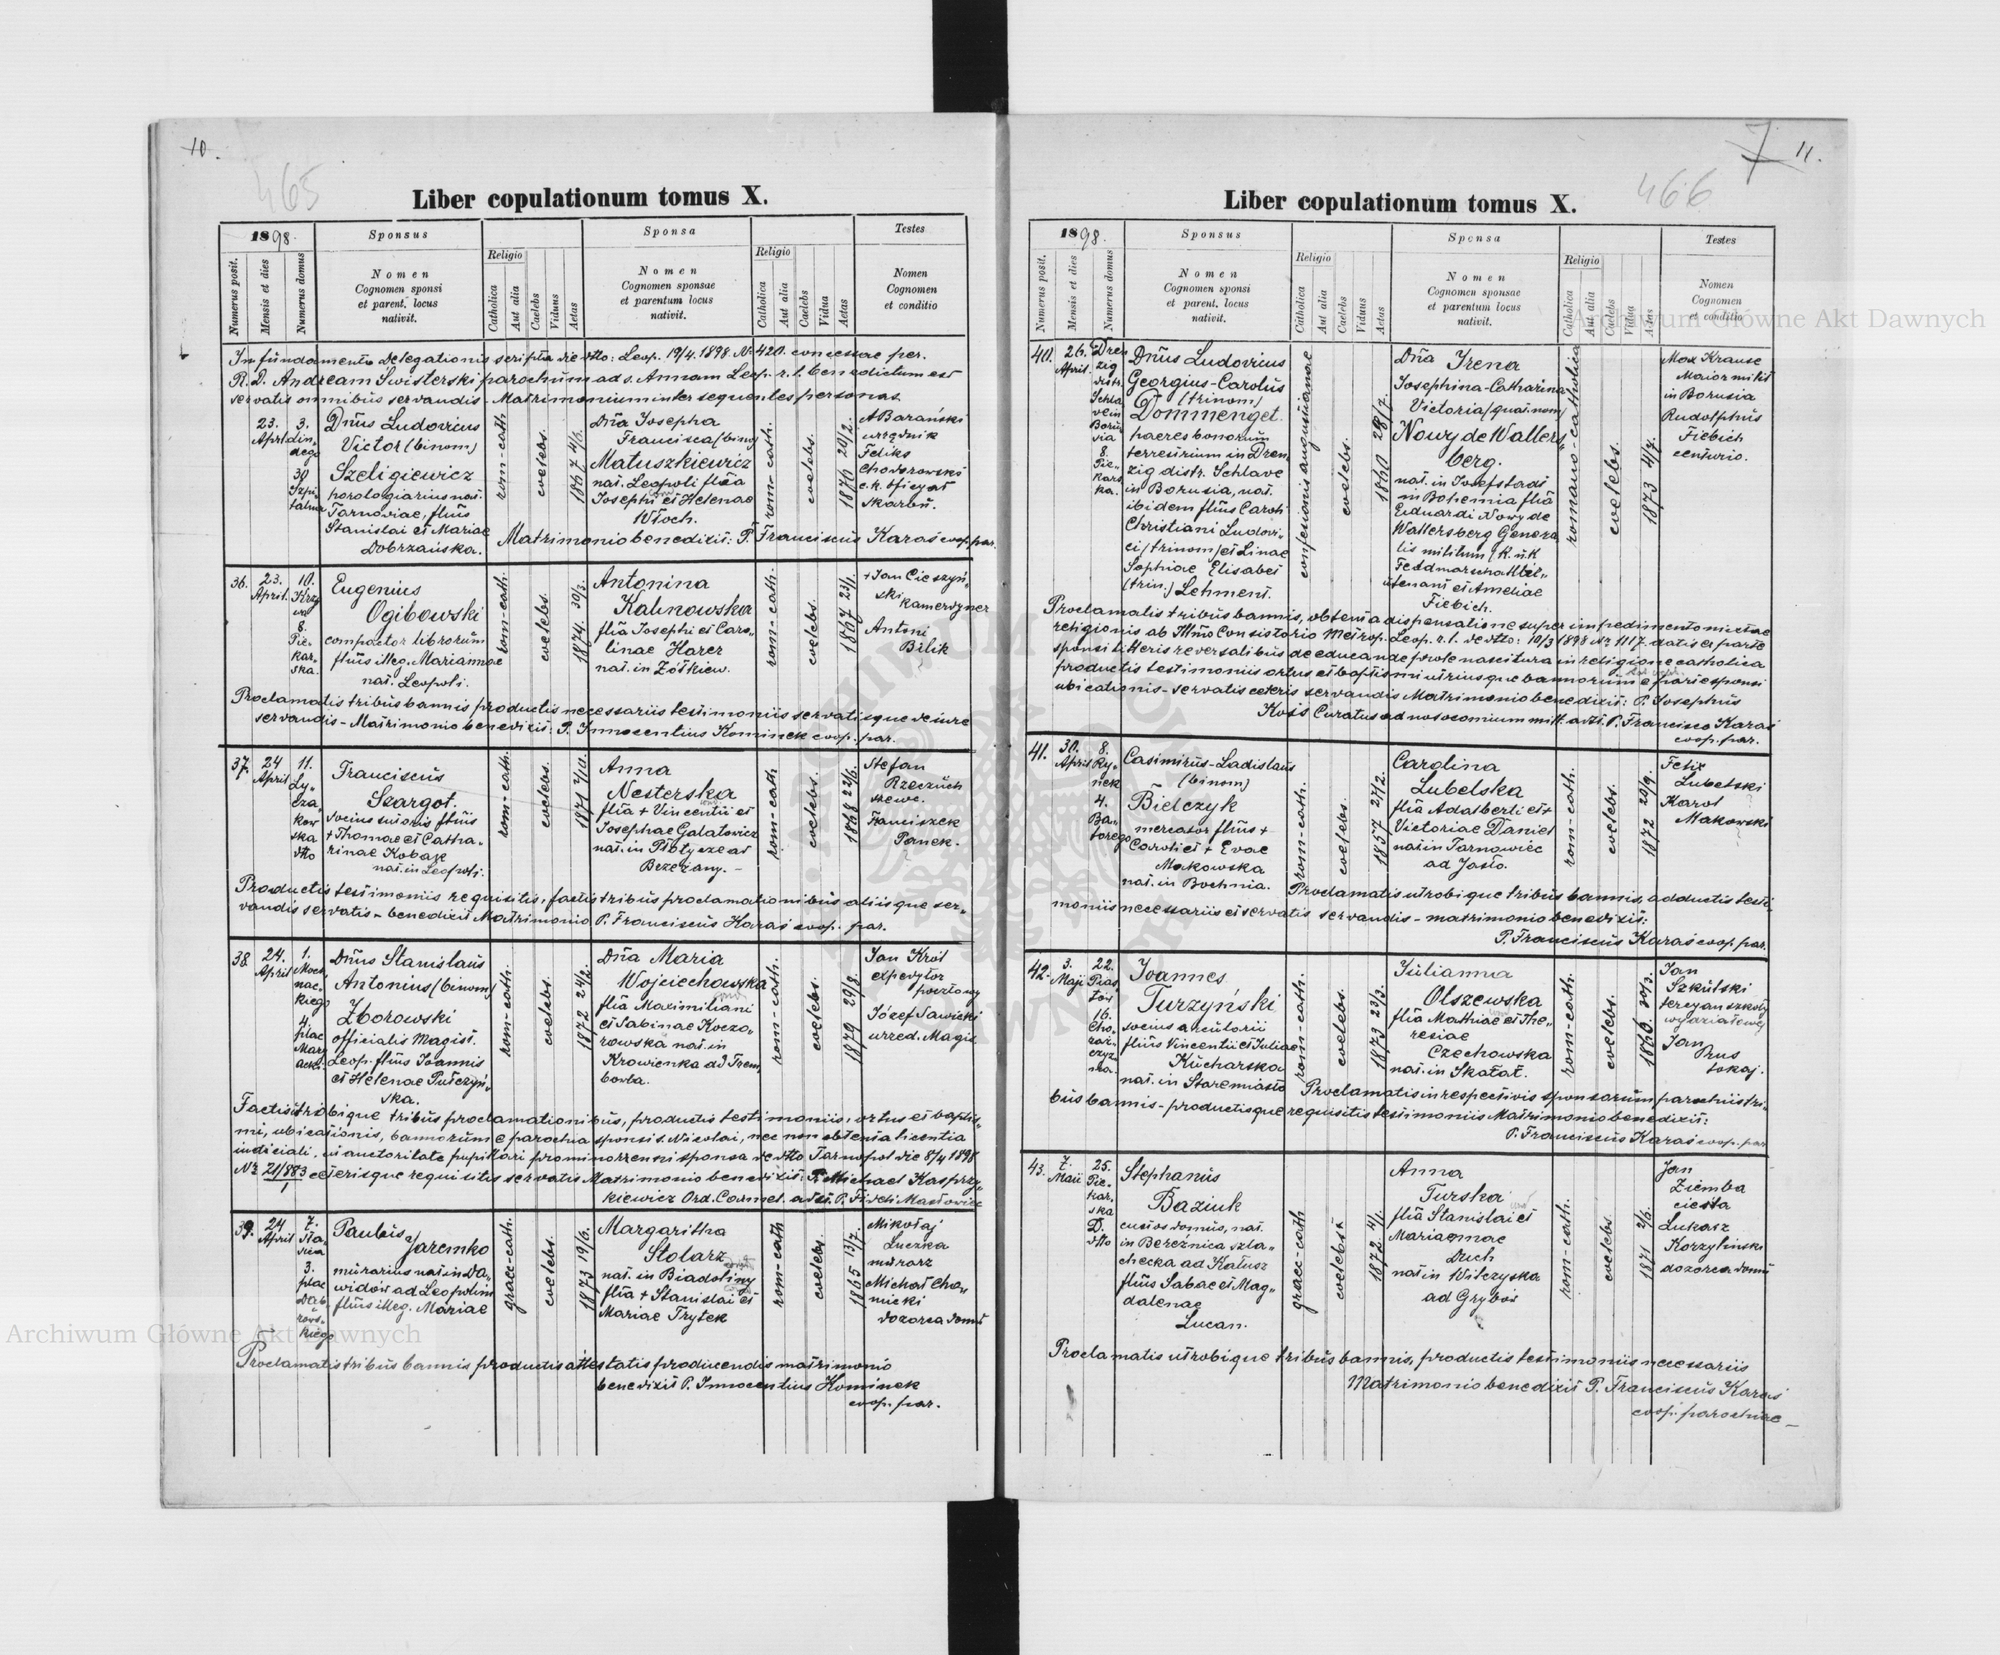 10.
465
Liber copulationum tomus X.
1898.
Sponsus
Sponsa
Testes
Numerus posit.
Mensis et dies
Numerus domus
Nomen
Cognomen sponsi
et parent. locus
nativit.
Religio
Catholica
Aut alia
Caelebs
Viduus
Aetas
Nomen
Cognomen sponsae
et parentum locus
nativit.
Religio
Catholica
Aut alia
Caelebs
Vidua
Aetas
Nomen
Cognomen
et conditio
In fundamento Delegationis scripta de dtto: Leop. 19/4. 1898 Nr 420. concessae per.
R. D. Andream Świsterski parochum ad s. Annam Leop. r. l. benedictum est
servatis omnibus servandis - Matrimonium inter sequentes personas
23.
April
3.
din-
dego
30
Szpi-
talna
Dnus Ludovicus
Victor (binom)
Szeligiewicz
horologiarius nat.
Tarnoviae, filius
Stanislai et Mariae
Dobrzańska.
rom-cath
coelebs.
1867 4/6.
Dna Josepha
Francisca (bino)
Matuszkiewicz
nat. Leopoli filia
Josephi et Helenae
Włoch.
rom-cath.
coelebs.
1876 20/2.
A Barański
urzędnik
Feliks
Chodorowski
c.k. oficyał
skarbu.
Matrimonio benedixit: P. Franciscus Karaś coop. par.
36.
23.
April.
10.
Krzy
wa
8.
Pie-
kar-
ska.
Eugenius
Ogibowski
compactor librorum
filius illeg. Mariannae
nat. Leopoli.
rom-cath.
coelebs.
1874. 30/3.
Antonina
Kalinowska
filia Josephi et Caro-
linae Harez
nat. in Żółkiew.
rom-cath.
coelebs.
1867 23/1.
+ Jan Cieszyń-
ski
kamerdyner
Antoni
Bilik
Proclamatis tribus bannis productis necessariis testimoniis servatisque de iure
servandis - Matrimonio benedixit: P. Innocentius Kominek coop. par.
37.
24
April
11.
Ły-
cza-
kow
ska
dtto
Franciscus
Szargot.
socius sutoris filius
+ Thomae et Catha-
rinae Kobak
nat. in Leopoli.
rom-cath.
coelebs.
1871 4/10.
Anna
Nesterska
filia + Vincentii et
Josephae Galatowicz
nat. in Płotycze ad
Brzeżany. -
rom-cath
coelebs.
1868 22/6.
Stefan
Franciszek
Panek.
Productis testimoniis requisitis, factis tribus proclamationibus aliisque ser-
vandis servatis - benedixit Matrimonio P. Franciscus Karaś coop. par.
38
24.
April
1.
Moch
nac-
kiego
4.
plac
Mary
acki.
Dnus Stanislaus
Antonius (binom)
Zborowski
officialis Magist.
Leop. filius Joannis
et Helenae Pułczyń-
ska.
rom-cath.
coelebs.
1872 24/2.
Dna Maria
Wojciechowska
filia Maximiliani
et Sabinae Koczo-
rowska nat. in
Krowienka ad Trem
bowla.
rom-cath.
coelebs.
1879 29/8.
Jan Król
expedytor
pocztowy
Józef Sawicki
urzed. Magis.
Factis utrobique tribus proclamationibus, productis testimoniis, ortus et baptis-
mi, ubicationis, bannorum e parochia sponsi s. Nicolai, nec non obtenta licentia
iudiciali, ui auctoritate pupillari pro minorenni sponsa de dtto Tarnopol die 8/4 1898
Nr 21/883/1 ceterisque requisitis servatis Matrimonio benedixit: P. Michael Kasprzy-
kiewicz Ord. Carmel. adst. P. Fideli Masłowicz
39.
24
April
7.
3.
plac
Dąb-
rows-
kiego
Paulus
Jaremko
murarius nat in Da-
widów ad Leopolim
filius illeg. Mariae
graec-cath.
coelebs.
1873 19/6.
Margaritha
Stolarz
nat. in Biadoliny
filia + Stanislai et
Mariae Trytek
rom-cath
coelebs.
1865 13/7.
Mikołaj
Luczka
murarz
Michał Cha-
nicki
dozorca domu
Proclamatis tribus bannis productis attestatis producendis matrimonio
benedixit P. Innocentius Kominek
coop. par.
7
11.
466
Liber copulationum tomus X.
1898.
Sponsus
Sponsa
Testes
Numerus posit.
Mensis et dies
Numerus domus
Nomen
Cognomen sponsi
et parent. locus
nativit.
Religio
Catholica
Aut alia
Caelebs
Viduus
Aetas
Nomen
Cognomen sponsae
et parentum locus
nativit.
Religio
Catholica
Aut alia
Caelebs
Vidua
Aetas
Nomen
Cognomen
et conditio
Archiwum Główne Akt Dawnych
40.
26.
April.
Dren
zig
distr.
Schla
we in
Boru
sia
8.
Pie-
kars
ka.
Dnus Ludovicus
Georgius-Carolus
(trinom)
Dommenget.
haeres bonorum
terrestrium in Dren
zig distr. Schlave
in Borusia, nat.
ibidem filius Caroli
Christiani Ludovi-
ci (trinom) et Linae
Sophiae Elisabet
(trin.) Lehment.
confesionis augustianae
coelebs.
1860 28/7.
Dna Irena
Josephina-Catharina
Victoria (quat. nom)
Nowy de Wallers-
berg.
nat. in Josefstadt
in Bohemia filia
Eduardi Nowy de
Wallersberg Genera
lis militum (K. u. K
Feldmarschallieu-
tenant et Ameliae
Fiebich.
romano-catholica
coelebs.
1873 4/7.
Max Krause
Maior milit
in Borusia
Rudolphus
Fiebich
centurio.
Proclamatis tribus bannis, obtenta dispensatione super impedimento mixtae
religionis ab Illmo Consistorio Metrop. Leop. r. l. de dtto: 10/3 1898 Nr 1117. datis ex parte
sponsi litteris reversalibus de educande prole nascitura in religione catholica
productis testimoniis ortus et baptismi utriusque bannorum e parte sponsi
ubicationis - servatis ceteris servandis Matrimonio benedixit: P. Josephus
Koss Curatus ad nosocomium milit. adst. P. Francisco Karaś
coop. par.
41.
30.
April
8.
Ry-
nek
4.
Ba-
torego
Casimirus-Ladislaus
(binom)
Bielczyk
mercator filius +
Caroli et + Evae
Makowska
nat. in Bochnia.
rom-cath.
coelebs.
1857 27/2.
Carolina
Lubelska
filia Adalberti et +
Victoriae Daniel
nat in Tarnowiec
ad Jasło.
rom-cath.
coelebs.
1872 20/9.
Felix
Lubelski
Karol
Makowski
Proclamatis utrobique tribus bannis, adductis testi-
moniis necessariis et servatis servandis - matrimonio benedixit:
P. Franciscus Karaś coop. par.
42.
3.
Maji
22.
16.
Cho-
rąż-
czyz
na.
Joannes
Turzyński
filius Vincentii et Juliae
Kucharska
nat. in Staremiasto
rom-cath.
coelebs.
1873 23/3.
Julianna
Olszewska
filia Mathiae et The-
resiae
Czechowska
nat. in Skałat.
rom-cath.
coelebs.
1860. 30/3.
Jan
Szkulski
tercyan szkoły
wydziałowej
Jan
Rus
lokaj.
Proclamatis in respectivis sponsorum parochiis tri-
bus bannis - productisque requisitis testimoniis Matrimonio benedixit:
P. Franciscus Karaś coop. par
43.
7.
Maii
25.
Pie-
kar-
ska
D.
dtto
Stephanus
Baziuk
custos domus, nat.
in Bereźnica szla-
checka ad Kałusz
filius Sabae et Mag-
dalenae
Lucan.
graec-cath
coelebs
1872 4/1.
Anna
Turska
filia Stanislai et
Mariannae
Duch
nat in Wilczyska
ad Grybów
rom-cath.
coelebs.
1871 2/6.
Jan
Ziemba
cieśla
Lukasz
Korzyliński
dozorca domu
Proclamatis utrobique tribus bannis, productis testimoniis necessariis
Matrimonio benedixit P. Franciscus Karaś
coop. parochiae -
Archiwum Główne Akt Dawnych